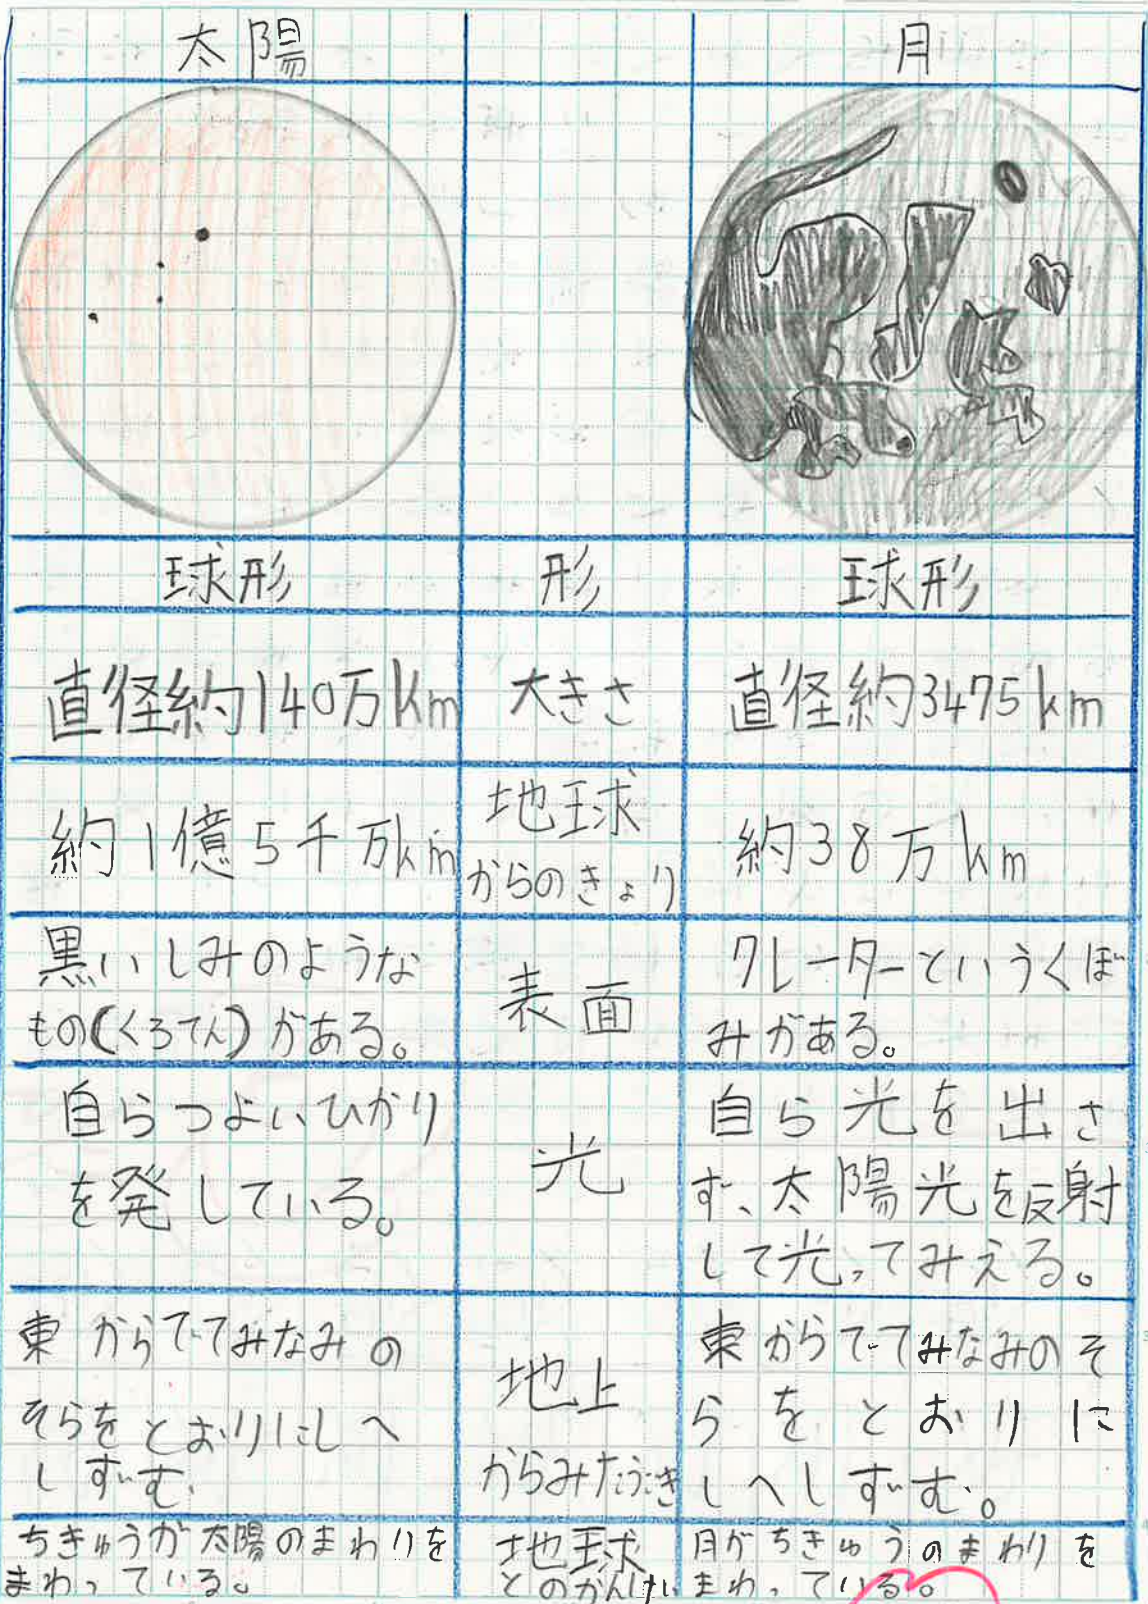 太陽
月
球形
形
球形
直径約140万km
大きさ
直径約3475km
約1億5千万km
地球
からのきょり
約38万km
黒いしみのような
もの(くろてん)がある。
表面
クレーターというくぼ
みがある。
自らつよいひかり
を発している。
光
自ら光を出さ
ず、太陽光を反射
して光ってみえる。
東からでてみなみの
そらをとおりにしへ
しずむ。
地上
からみたうごき
東からでてみなみのそ
らをとおりに
しへしずむ。
ちきゅうが太陽のまわりを
まわっている。
地球
とのかんけい
月がちきゅうのまわりを
まわっている。